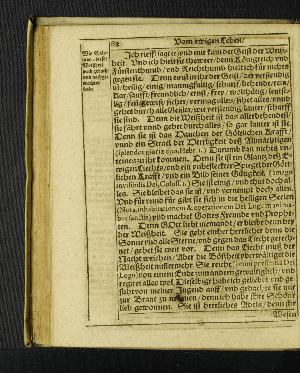 82 Vom ewigen Leben/
Wie Salo-
mon dieser
Weißheit
nach getracht
habe
Ich rieff/ sagt er/ vnd mir kam der Geist der Weiß-
heit. Vnd ich hielt sie thewrer/ denn Königreich vnd
Fürstenthumb/ vnd Reichthumb hielt ich für nichts
gegen sie. Denn es ist in ihr der Geist/ der verstendig
ist/ heilig/ einig/ mannigfaltig/ scharff/ behend/
klar/ sanfft/ freundlich/ ernst/ frey/ wolthätig/ leutse-
lig/ fest/ gewiß/ sicher/ vermag alles/ sihet alles/ vnd
gehet durch alle Geister/ wie verstendig/ lauter/ scharff
sie sind. Denn die Weißheit ist das allerbehendest/
sie fähret vnnd gehet durch alles/ so gar lauter ist sie.
Denn sie ist das Hauchen der Göttlichen Krafft/
vnd ein Strael der Herrligkeit des Allmächtigen
Darumb kan nichts vn-
reines zu ihr kommen. Denn sie ist ein Glantz deß E-
wigen Liechts/ vnd ein vnbefleckter Spiegel der Gött-
lichen Krafft/ vnd ein Bild seiner Gütigkeit
Sie ist einig/ vnd thut doch al-
les. Sie bleibet das sie ist/ vnd vernewet doch alles.
Vnd für vnnd für gibt sie sich in die heiligen Seelen
vnd machet Gottes Freunde vnd Prophe-
ten. Denn GOtt liebt niemand/ er bleibe denn bey
der Weißheit. Sie geht einher herrlicher denn die
Sonne vnd alle Sterne/ vnd gegen das Liecht gerech-
net/ gehet sie weit vor. Denn das Liecht muß der
Nacht weichen/ Aber die Boßheit vberwältiget die
Weißheit nimmermehr. Sie reichet
von einem Ende zum andern gewaltiglich/ vnd
regieret alles wol. Dieselbige hab ich geliebet vnd ge-
sucht von meiner Jugend auff/ vnd gedachte sie mir
zur Braut zu nehmen/ denn ich habe ihre Schöne
lieb gewonnen. Sie ist herrliches Adels/ denn ihr
Wesen